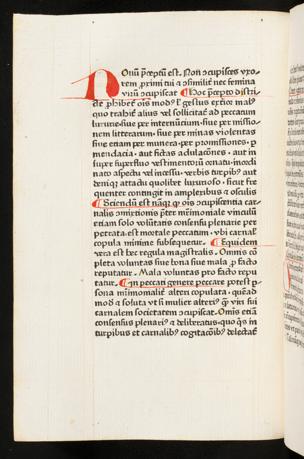 Nonũ p̃ceptũ est. Non ↄcupisces vxo-
rem primi tui ⁊ ↄsimilit̃ nec femina
virũ ↄcupiscat Hoc p̃cepto distri-
cte ꝓhibet̃ oĩs modꝰ ⁊ gestus
quo trahit̃ aliuꝰ vel sollicitat̃ ad peccatum
luxurie·siue per internũcium·siue per missio-
nem litterarum·siue per minas violentas
siue etiam per munera·per promissiones·per
mendacia·aut fictas adulacões·aut in
super superfluo vestimentorũ ornatu·inordi
nato aspectu vel incessu·verbis turpibꝰ aut
deniqꝫ attactu quolibet luxurioso·sicut fre
quenter contingit in amplexibus ⁊ osculis
Sciendũ est nãqꝫ ꝙ oĩs ↄcupiscentia car-
nalis ↄmixtionis pret̃ mr̃imoniale vinculũ
etiam solo volũtatis consensu plenarie per
petrata·est mortale peccatum·vbi carnal̃
copula minime subsequetur. Equidem
vera est hec regula magistralis·Omnis cõ
pleta voluntas siue bona siue mala ꝓ facto
reputatur·Mala voluntas pro facto repu
tatur·In peccati genere peccare potest ꝑ-
sona mr̃imonialit̃ alteri copulata·quẽad
modũ ⁊ soluta vt si mulier alteriꝰ ꝙ̃ viri sui
carnalem societatem ↄcupiscat·Omis etiã
consensus plenariꝰ ⁊ deliberatus·quo q̃s in
turpibus et carnalibꝰ cogitacõibꝰ delectat̃